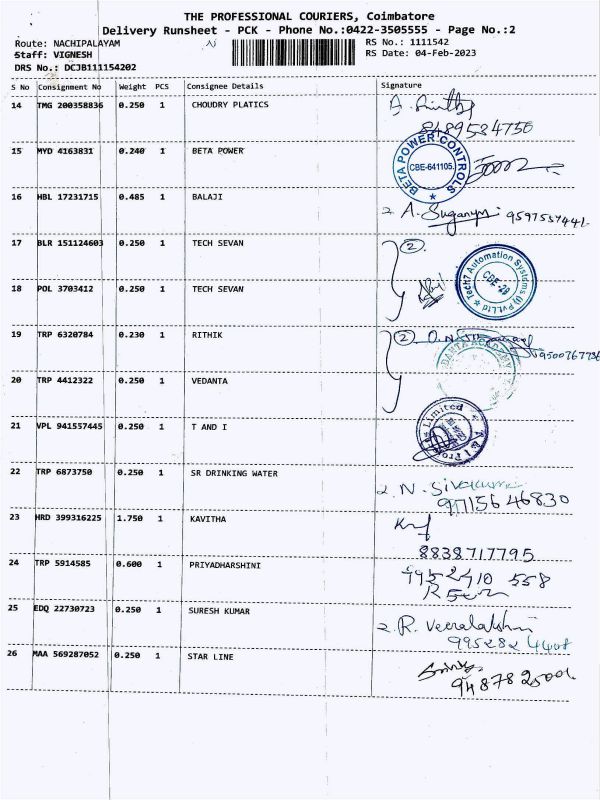 THE PROFESSIONAL COURIERS, Coimbatore
Delivery Runsheet - PCK - Phone No.:0422-3505555 - Page No.:2
Route: NACHIPALAYAM
RS No.: 1111542
Staff: VIGNESH
RS Date: 04-Feb-2023
DRS No.: DCJB111154202
S No Consignment No Weight PCS Consignee Details Signature
14 TMG 200358836 0.250 1 CHOUDRY PLATICS
8489534750
15 MYD 4163831 0.240 1 BETA POWER
BETA POWER CONTROLS
CBE-641105.
16 HBL 17231715 0.485 1 BALAJI
2. A. Suganya 9597537441
17 BLR 151124603 0.250 1 TECH SEVAN
2
Tech7 Automation Systems (I) Pvt Ltd
CBE-29
18 POL 3703412 0.250 1 TECH SEVAN
19 TRP 6320784 0.230 1 RITHIK
2
9500767736
20 TRP 4412322 0.250 1 VEDANTA
21 VPL 941557445 0.250 1 T AND I
Limited
22 TRP 6873750 0.250 1 SR DRINKING WATER
2. N. Sivakumar
9715646830
23 HRD 399316225 1.750 1 KAVITHA
8838717795
24 TRP 5914585 0.600 1 PRIYADHARSHINI
9952410 558
25 EDQ 22730723 0.250 1 SURESH KUMAR
2. R. Veeralakshmi
995282 4408
26 MAA 569287052 0.250 1 STAR LINE